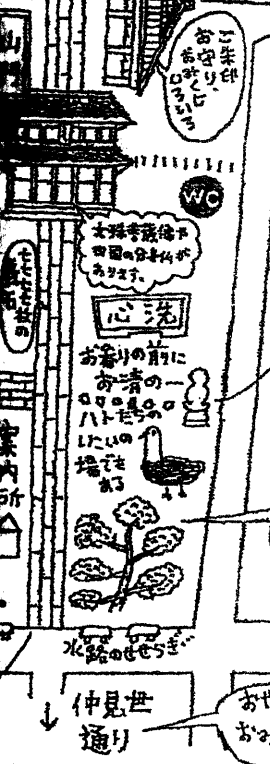 山門
ご朱印
お守り、
おみくじ
いろいろ
WC
七七七七枚の
敷石
四国の分身仏が
あります。
洗心
お参りの前に
お清め
ハトたちの
いこいの
場でも
ある
案内所
水路のせせらぎ
仲見世
通り
おや
おみ